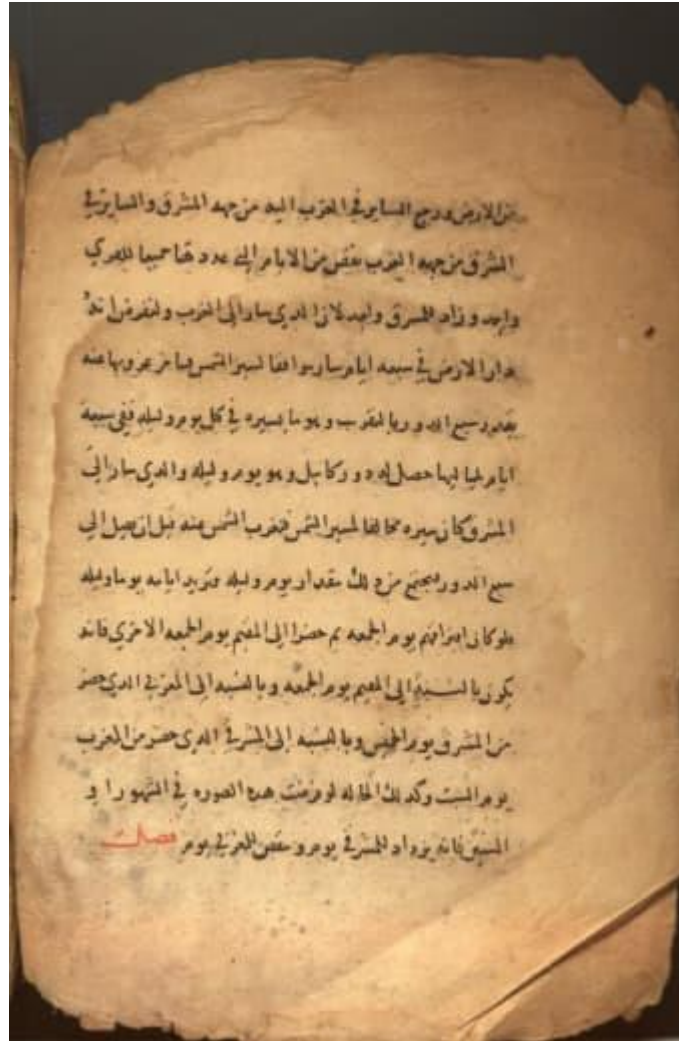 من الارض ورجع الساير في المغرب اليه من جهه المشرق والساير في
المشرق من جهه المغرب نقص من الايام التي عددها جميعا للمغربي
واحد وزاد للمشرقي واحد لان الذي سار الى المغرب ولنفرض انه
دار الارض في سبعه ايام سار موافقا لسير الشمس فيتاخر غروبها عنه
بقدر سبع الدور بالتقريب وهو ما يسيره في كل يوم وليله ففي سبعة
ايام بلياليها حصل له دور كامل وهو يوم وليله والذي سار الى
المشرق كان سيره مخالفا لسير الشمس فتغرب الشمس عنه قبل ان يصل الى
سبع الدور فيجتمع من ذلك مقدار يوم وليله فتزيد ايامه يوما وليله
فلو كان افتراقهم يوم الجمعه ثم حضروا الى المقيم يوم الجمعه الاخري فانه
يكون بالنسبة الى المقيم يوم الجمعه وبالنسبه الى المغربي الذي حضر
من المشرق يوم الخميس وبالنسبه الى المشرقي الذي حضر من المغرب
يوم السبت وكذلك الحاله لو فرضت هذه الصوره في الشهور او
السنين فانه يزداد للمشرقي يوم وينقص للمغربي يوم فصل